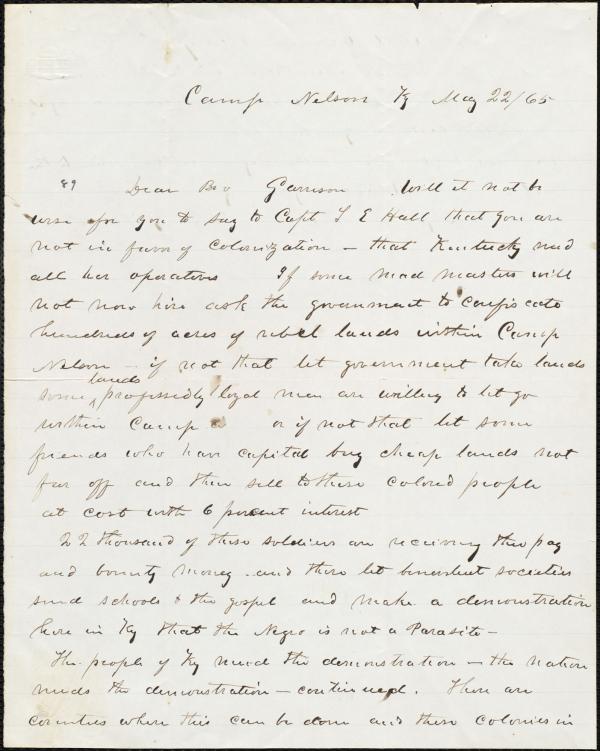 Camp Nelson Ky May 22/65
89 Dear Bro Garrison Will it not be
wise for you to say to Capt T E Hall that you are
not in favor of colonization – that Kentucky need
all her operatives If some mad masters will
not now hire ask the government to confiscate
hundreds of acres of rebel lands within Camp
Nelson – if not that let government take lands
lands
some professedly loyal men are willing to let go
within Camp or if not that let some
friends who have capital buy cheap lands not
far off and then sell to these colored people
at cost with 6 percent interest
22 thousand of these soldiers are receiving their pay
and bounty money – and there let benevolent societies
send schools & the gospel and make a demonstration
here in Ky that the Negro is not a Parasite –
The people of Ky need the demonstration – the nation
needs the demonstration – continued. There are
counties where this can be done and these colonies in